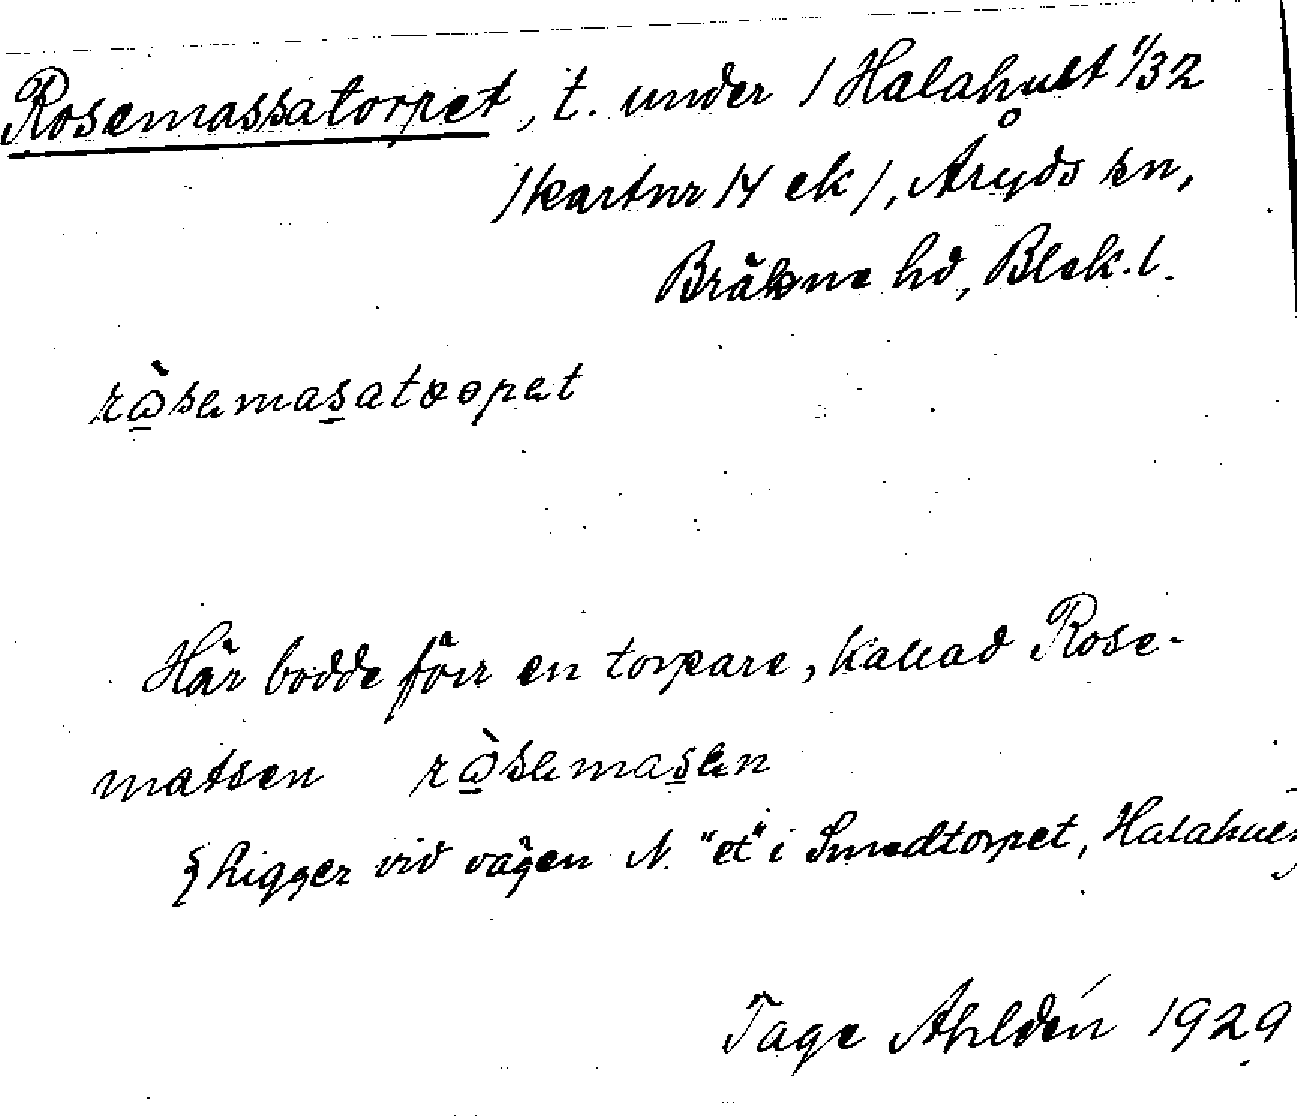 Rosemassatorpet, t. under / Halahult 1/32
/kartnr 14 ek/, Åryds sn,
Bräkne hd, Blek. l.
Här bodde förr en torpare, kallad Rose-
matsen
{ligger vid vägen N. "et" i Smedtorpet, Halahult}
Tage Ahldén 1929